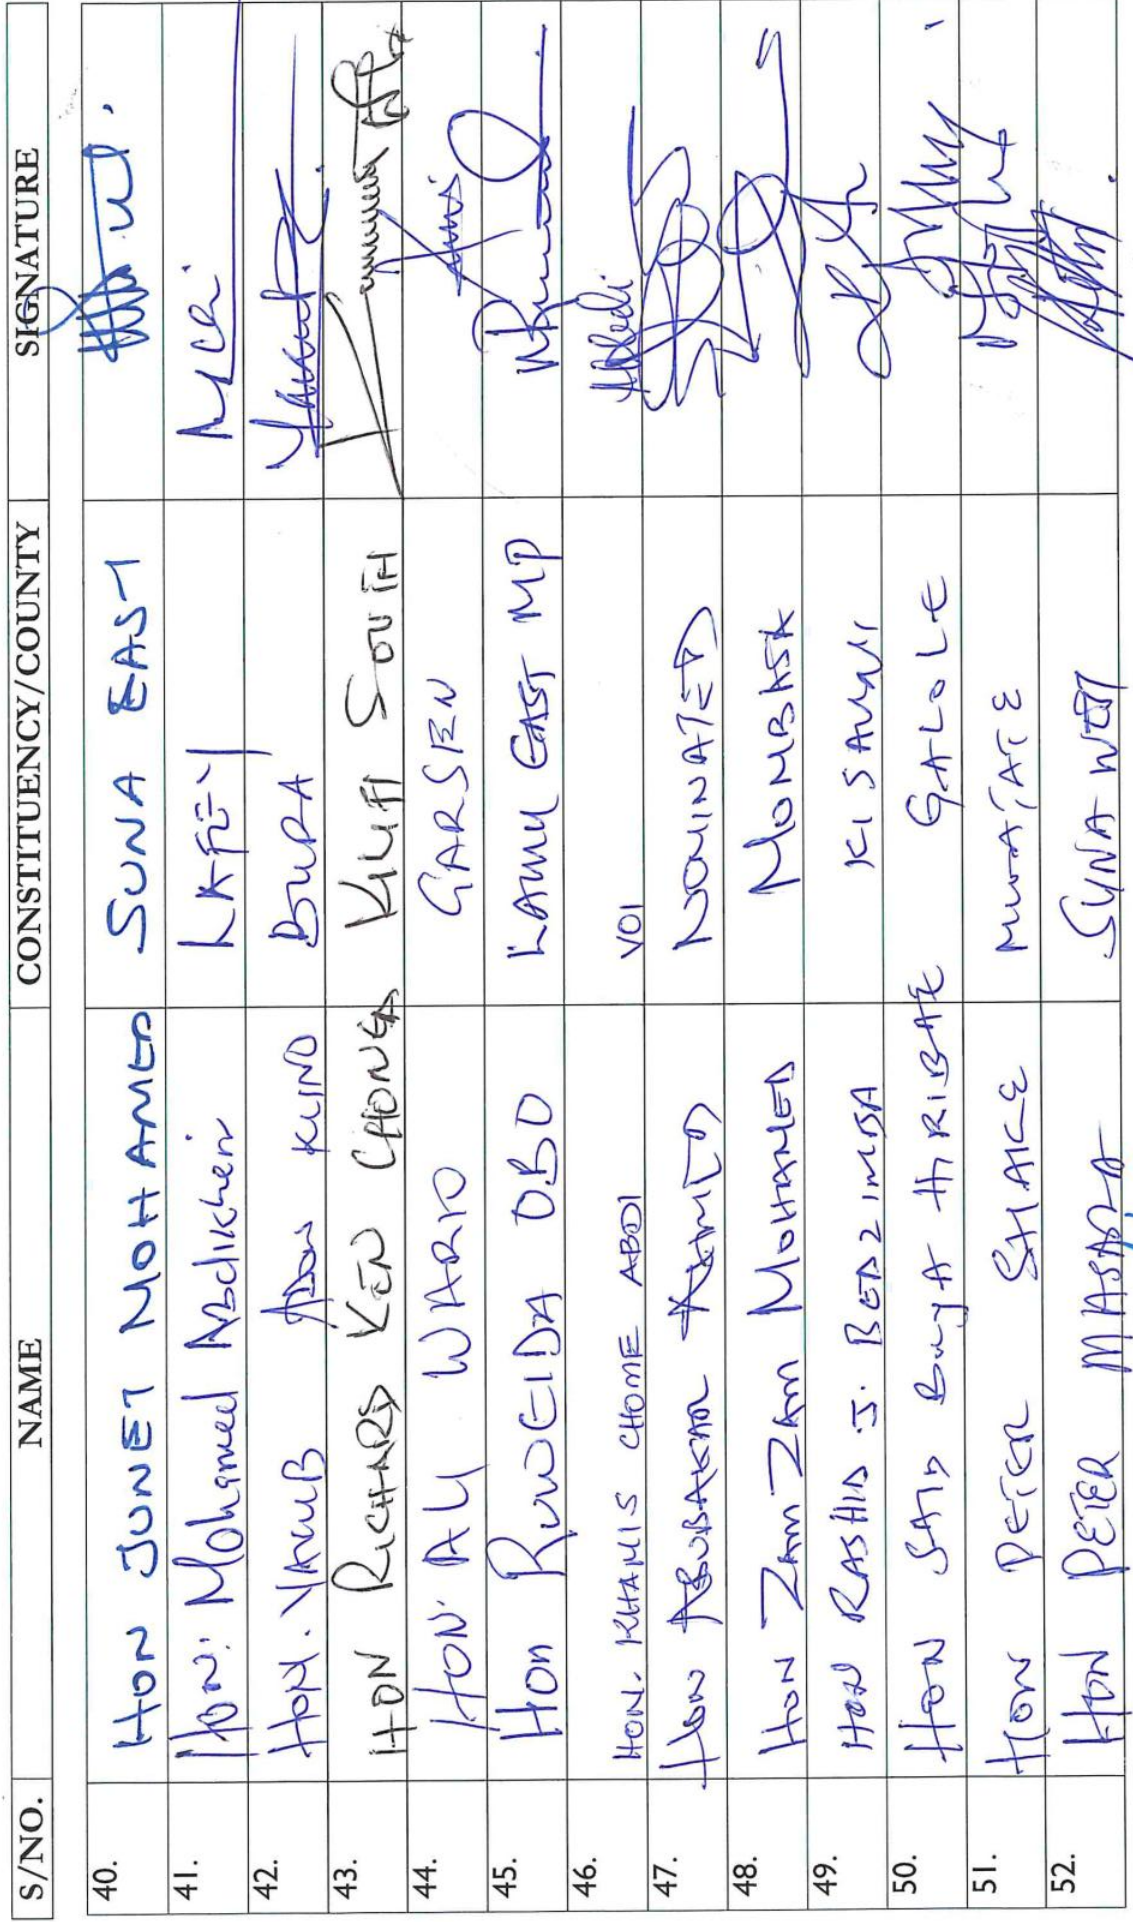 S/NO. NAME CONSTITUENCY/COUNTY SIGNATURE
40. HON JUNET MOHAMED SUNA EAST
41. HON: Mohamed Abdikheir LAFEY
42. HON. YAKUB ADOW KUNO BURA
43. HON RICHARD KEN CHONGA KILIFI SOUTH
44. HON. ALI WARIO GARSEN
45. Hon RUWEIDA OBO LAMU EAST MP
46. HON. KHAMIS CHOME ABDI VOI
47. Hon ABUBAKAR NOMINATED
48. HON ZAM ZAM MOHAMED MOMBASA
49. HON RASHID J. BEDZIMBA KISAUNI
50. HON SAID BUYA HIRIBAE GALOLE
51. HON PETER MWATATE
52. HON PETER MASARA SUNA WEST